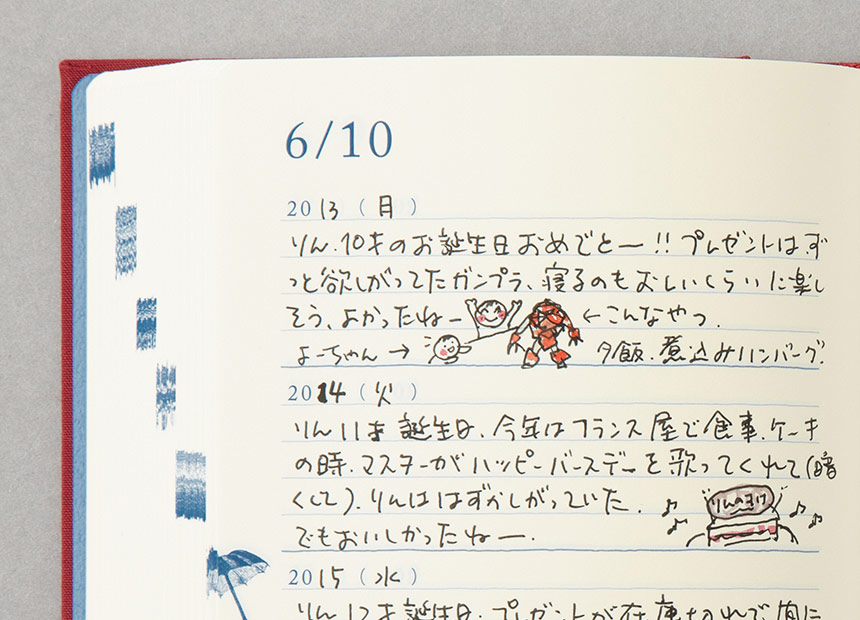 6/10
2013（月）
りん、10才のお誕生日おめでとー!! プレゼントは、ず
っと欲しがってたガンプラ、寝るのもおしいくらいに楽し
そう、よかったねー ←こんなやつ、
よーちゃん→ 夕飯、煮込みハンバーグ!
2014（火）
りん11才誕生日、今年はフランス屋で食事、ケーキ
の時、マスターがハッピーバースデーを歌ってくれて(暗
くして)、りんははずかしがっていた、
りんのヨリ
でもおいしかったねー.
2015（水）
りん12才誕生日、プレゼントが在庫切れで間に